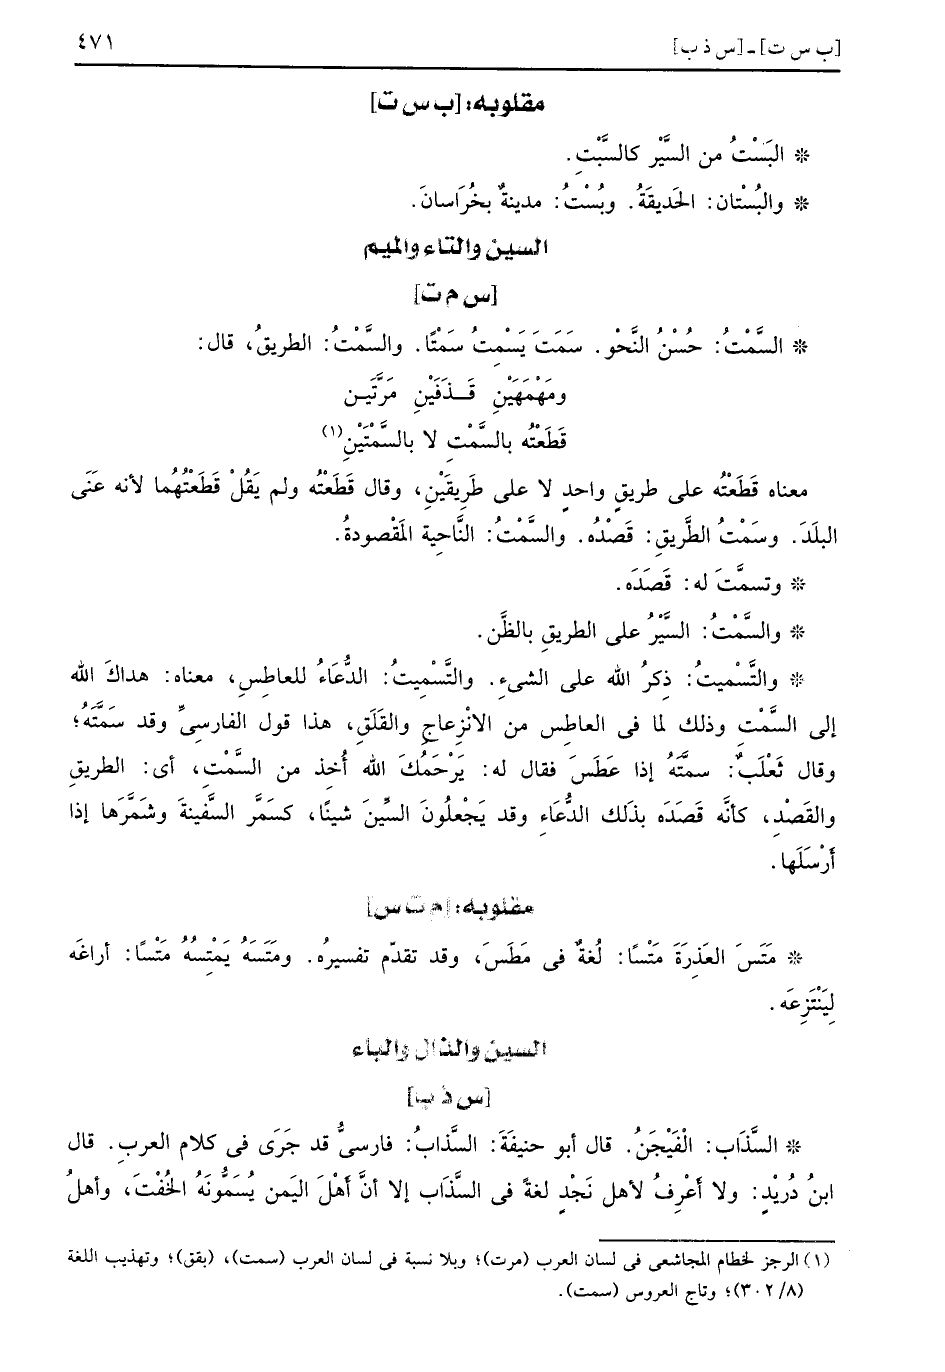 [ب س ت] ـ [س ذ ب] ٤٧١
مقلوبه: [ب س ت]
* البَسْتُ من السَّيْر كالسَّبْتِ.
* والبُسْتان: الحَديقَةُ. وبُسْتُ: مدينةٌ بخُرَاسانَ.
السين والتاء والميم
[س م ت]
* السَّمْتُ: حُسْنُ النَّحْوِ. سَمَتَ يَسْمِتُ سَمْتًا. والسَّمْتُ: الطريقُ، قال:
ومَهْمَهَيْنِ قَـذَفَيْنِ مَرْتَيـن
قَطَعْتُه بالسَّمْتِ لا بالسَّمْتَيْنِ(١)
معناه قَطَعْتُه على طريقٍ واحدٍ لا على طَرِيقَيْنِ، وقال قَطَعْتُه ولم يَقُلْ قَطَعْتُهُما لأنه عَنَى
البلَدَ. وسَمْتُ الطَّرِيقِ: قَصْدُه. والسَّمْتُ: النَّاحِية المَقْصودةُ.
* وتسمَّتَ له: قَصَدَه.
* والسَّمْتُ: السَّيْرُ على الطريقِ بالظَّن.
* والتَّسْمِيتُ: ذكرُ الله على الشىءِ. والتَّسْمِيتُ: الدُّعَاءُ للعاطِسِ، معناه: هداكَ الله
إلى السَّمْتِ وذلك لما فى العاطِسِ من الانْزِعاجِ والقَلَقِ، هذا قول الفارسىِّ وقد سَمَّتَهُ؛
وقال ثَعْلَبٌ: سمَّتَهُ إذا عَطَسَ فقال له: يَرْحَمُكَ الله أُخِذ من السَّمْتِ، أى: الطريقِ
والقَصْدِ، كأنَّه قَصَدَه بذلك الدُّعَاءِ وقد يَجْعلُونَ السِّينَ شينًا، كسَمَّر السَّفينةَ وشَمَّرَها إذا
أَرْسَلَها.
مقلوبه: [م ت س]
* مَتَسَ العَذِرَةَ مَتْسًا: لُغةٌ فى مَطَسَ، وقد تقدّم تفسيرُه. ومَتَسَهُ يَمْتِسُهُ مَتْسًا: أراغَه
لِيَنْتَزِعَه.
السين والذال والباء
[س ذ ب]
* السَّذَاب: الْفَيْجَنُ. قال أبو حنيفَةَ: السَّذابُ: فارسىٌّ قد جَرَى فى كلام العربِ. قال
ابنُ دُريْدٍ: ولا أَعْرِفُ لأهل نَجْدٍ لغةً فى السَّذَاب إلا أنَّ أهْلَ اليَمن يُسَمُّونَهُ الخُفْتَ، وأهلُ
(١) الرجز لخطام المجاشعى فى لسان العرب (مرت)؛ وبلا نسبة فى لسان العرب (سمت)، (بقق)؛ وتهذيب اللغة
(٣٠٢/٨)؛ وتاج العروس (سمت).